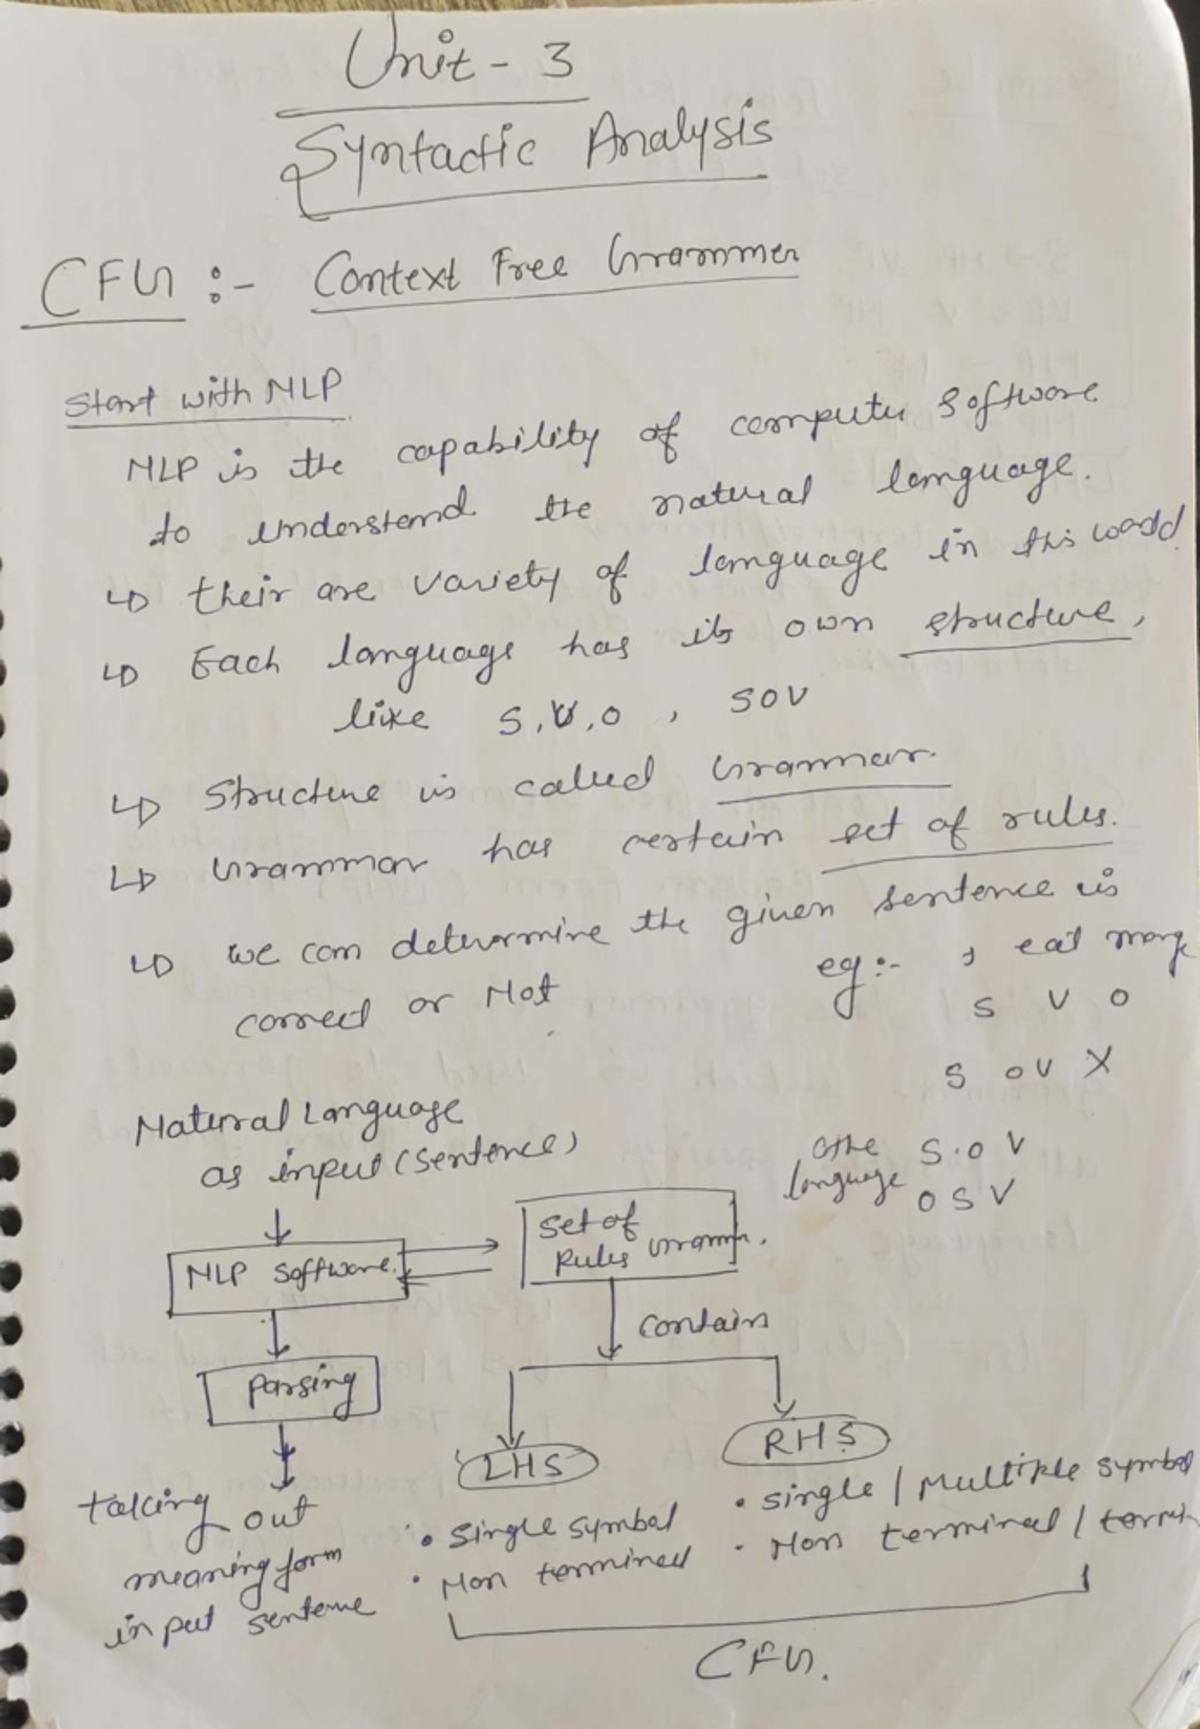 Unit - 3
Syntactic Analysis
CFG :- Context Free Grammer
Start with NLP
NLP is the capability of computer software
to understand the natural language.
↳ their are variety of language in this world.
↳ Each language has its own structure,
like S,V,O , SOV
↳ Structure is called Grammar.
↳ Grammar has certain set of rules.
↳ we can determine the given sentence is
correct or Not
eg:- I eat mange
S V O
S O V X
Natural Language
as input (Sentence)
othe language S.O V
O S V
NLP Software.
Set of
Rules Gramm.
contain
Parsing
LHS
RHS
taking out
meaning form
input sentence
• Single symbol
• Non terminal
• Single / Multiple symbol
• Non terminal / termin
CFG.